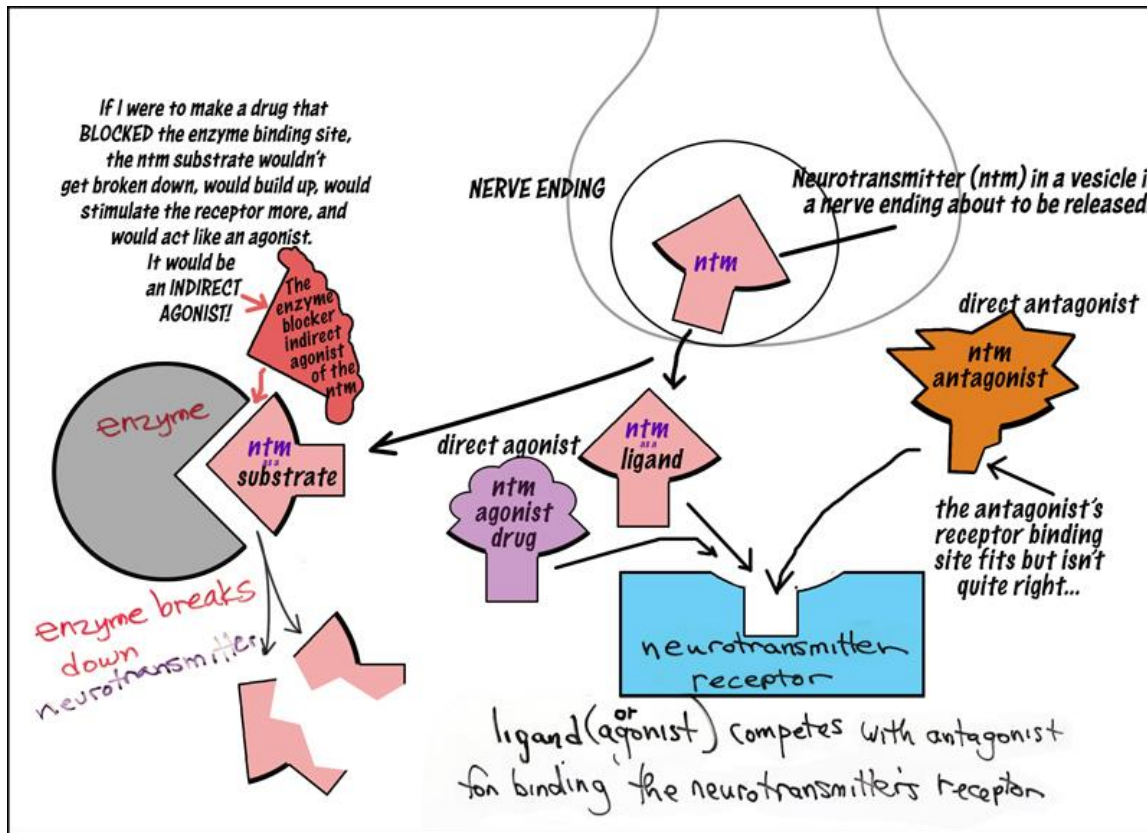 If I were to make a drug that
BLOCKED the enzyme binding site,
the ntm substrate wouldn't
get broken down, would build up, would
stimulate the receptor more, and
would act like an agonist.
It would be
an INDIRECT
AGONIST!
The
enzyme
blocker
indirect
agonist
of the
ntm
NERVE ENDING
Neurotransmitter (ntm) in a vesicle i
a nerve ending about to be released
ntm
direct antagonist
ntm
antagonist
enzyme
ntm
as a
substrate
direct agonist
ntm
agonist
drug
ntm
as a
ligand
the antagonist's
receptor binding
site fits but isn't
quite right...
enzyme breaks
down
neurotransmitter
neurotransmitter
receptor
ligand (or agonist) competes with antagonist
for binding the neurotransmitter's receptor